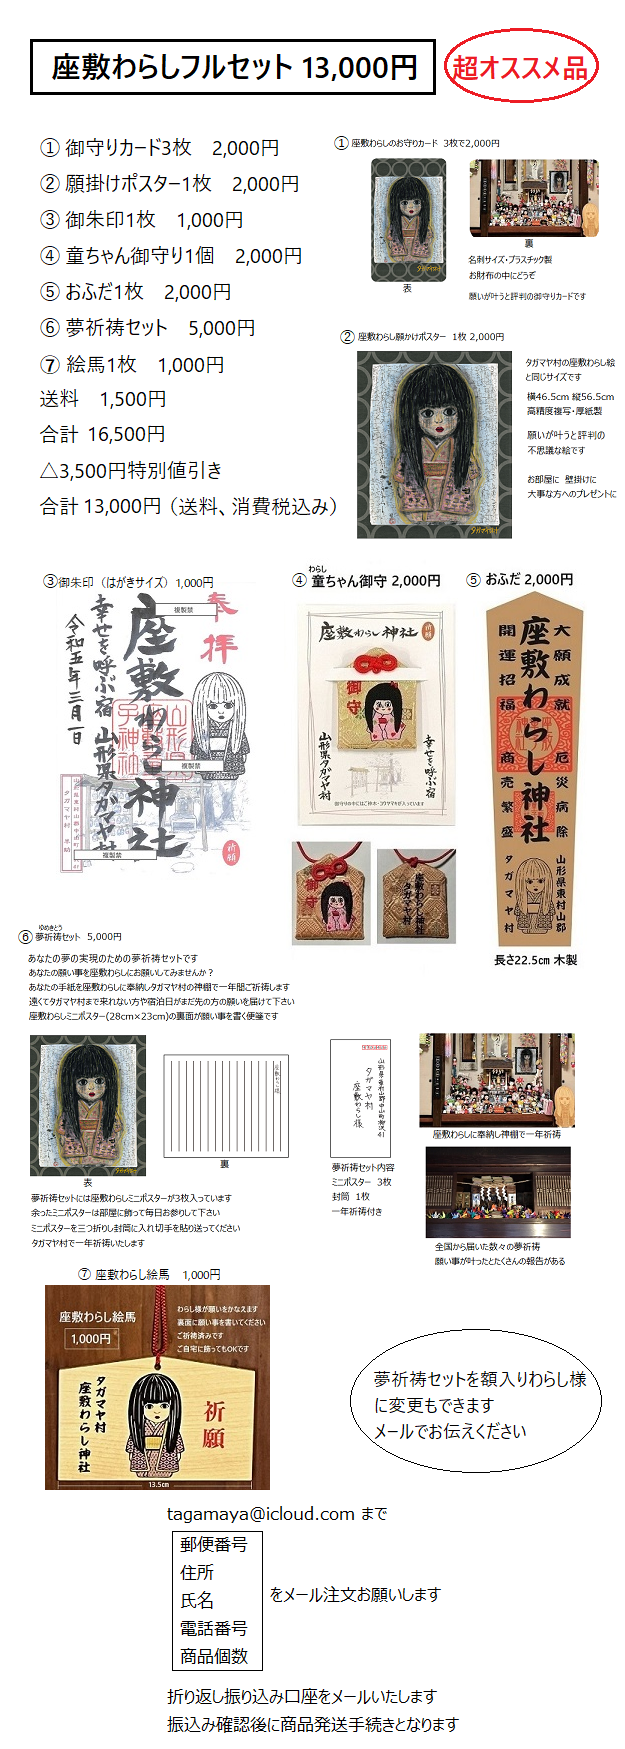 座敷わらしフルセット 13,000円
超オススメ品
① 御守りカード3枚　2,000円
② 願掛けポスター1枚　2,000円
③ 御朱印1枚　1,000円
④ 童ちゃん御守り1個　2,000円
⑤ おふだ1枚　2,000円
⑥ 夢祈祷セット　5,000円
⑦ 絵馬1枚　1,000円
送料　1,500円
合計 16,500円
△3,500円特別値引き
合計 13,000円（送料、消費税込み）
① 座敷わらしのお守りカード 3枚で2,000円
タガマヤ村
表
裏
名刺サイズ・プラスチック製
お財布の中にどうぞ
願いが叶うと評判の御守りカードです
② 座敷わらし願かけポスター 1枚 2,000円
タガマヤ村
タガマヤ村の座敷わらし絵
と同じサイズです
横46.5cm 縦56.5cm
高精度複写・厚紙製
願いが叶うと評判の
不思議な絵です
お部屋に 壁掛けに
大事な方へのプレゼントに
③御朱印（はがきサイズ）1,000円
奉拝
複製禁
座敷わらし神社
幸せを呼ぶ宿 山形県タガマヤ村
令和五年三月一日
複製禁
タガマヤ村
祈願
複製禁
わらし
④ 童ちゃん御守 2,000円
座敷わらし神社
祈願
御守
幸せを呼ぶ宿
山形県タガマヤ村
御守りの中にはご神木・コウヤマキが入っています
御守
座敷わらし神社
タガマヤ村
⑤ おふだ 2,000円
大願成就 厄災病除
座敷わらし神社
開運招福 商売繁盛
山形県東村山郡
タガマヤ村
長さ22.5cm 木製
ゆめきとう
⑥ 夢祈祷セット　5,000円
あなたの夢の実現のための夢祈祷セットです
あなたの願い事を座敷わらしにお願いしてみませんか？
あなたの手紙を座敷わらしに奉納しタガマヤ村の神棚で一年間ご祈祷します
遠くてタガマヤ村まで来れない方や宿泊日がまだ先の方の願いを届けて下さい
座敷わらしミニポスター(28cm×23cm)の裏面が願い事を書く便箋です
タガマヤ村
表
座敷わらし様
裏
山形県東村山郡中山町柳沢41
タガマヤ村
座敷わらし様
座敷わらしに奉納し神棚で一年祈祷
夢祈祷セット内容
ミニポスター　3枚
封筒　1枚
一年祈祷付き
夢祈祷セットには座敷わらしミニポスターが3枚入っています
余ったミニポスターは部屋に飾って毎日お参りして下さい
ミニポスターを三つ折りし封筒に入れ切手を貼り送ってください
タガマヤ村で一年祈祷いたします
全国から届いた数々の夢祈祷
願い事が叶ったとたくさんの報告がある
⑦ 座敷わらし絵馬　1,000円
座敷わらし絵馬
1,000円
わらし様が願いをかなえます
裏面に願い事を書いてください
ご祈祷済みです
ご自宅に飾ってもOKです
タガマヤ村
座敷わらし神社
祈願
13.5cm
夢祈祷セットを額入りわらし様
に変更もできます
メールでお伝えください
tagamaya@icloud.com まで
郵便番号
住所
氏名
電話番号
商品個数
をメール注文お願いします
折り返し振り込み口座をメールいたします
振込み確認後に商品発送手続きとなります